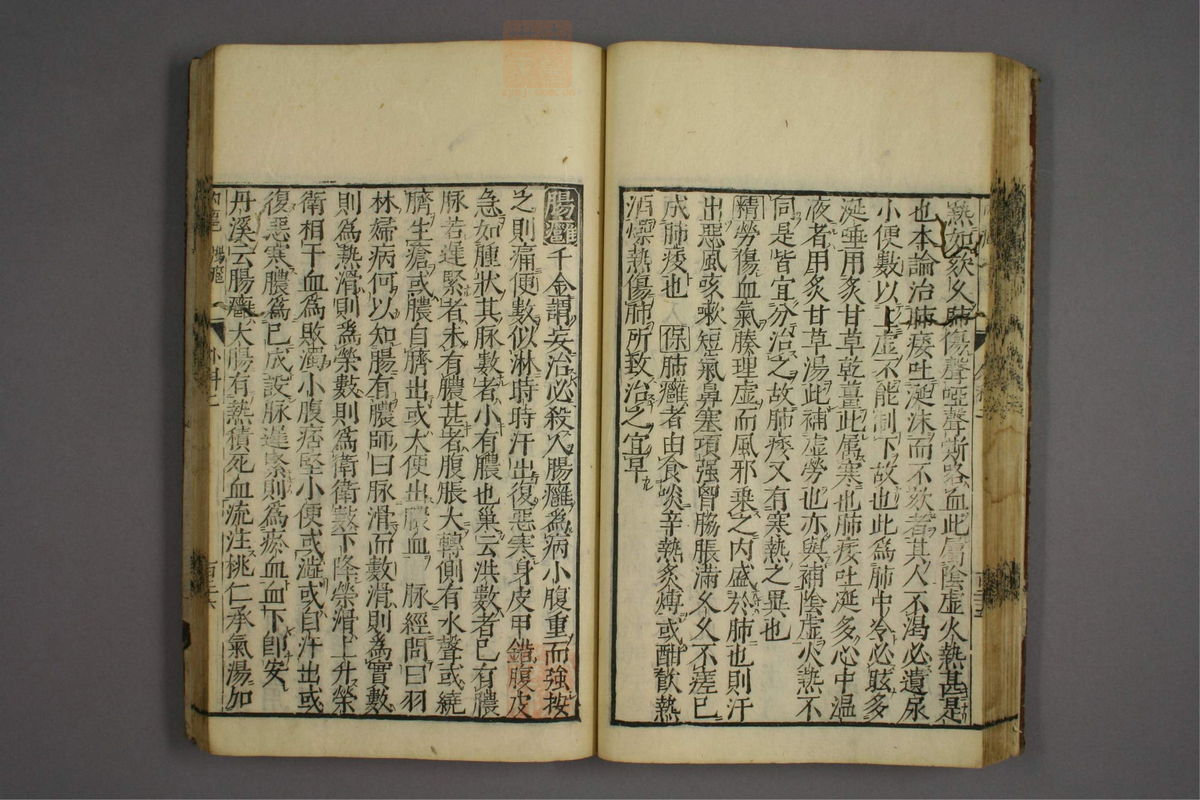 熱如欬久肺傷聲啞聲嘶咯血此屬陰虛火熱甚是
也本論治肺痿吐涎沫而不欬者其人不渴必遺尿
小便數以上虛不能制下故也此為肺中冷必眩多
涎唾用炙甘草乾薑此属寒也肺痿吐涎多心中温
液者用炙甘草湯此補虛勞也亦與補陰虛火熱不
同是皆宜分治之故肺痿又有寒熱之異也
精勞傷血氣腠理虛而風邪乗之内盛於肺也則汗
出惡風咳嗽短氣鼻塞項强胷脇脹滿久久不瘥已
成肺痿也 保肺癰者由食啖辛熱炙煿或酣飲熱
酒燥熱傷肺所致治之宜早
腸癰 千金謂妄治必殺人腸癰為病小腹重而強按
之則痛便數似淋時時汗出復惡寒身皮甲錯腹皮
急如腫狀其脉數者小有膿也巢云洪數者已有膿
脉若遅緊者未有膿甚者腹脹大轉側有水聲或繞
臍生瘡或膿自臍出或大便出膿血 脉經問曰羽
林婦病何以知腸有膿師曰脉滑而數滑則為實數
則為熱滑則為榮數則為衛衛數下降榮滑上升榮
衛相干血為敗濁小腹痞堅小便或澁或自汗出或
復惡寒膿為已成設脉遅緊則為瘀血血下即安
丹溪云腸癰大腸有熱積死血流注桃仁承氣湯加